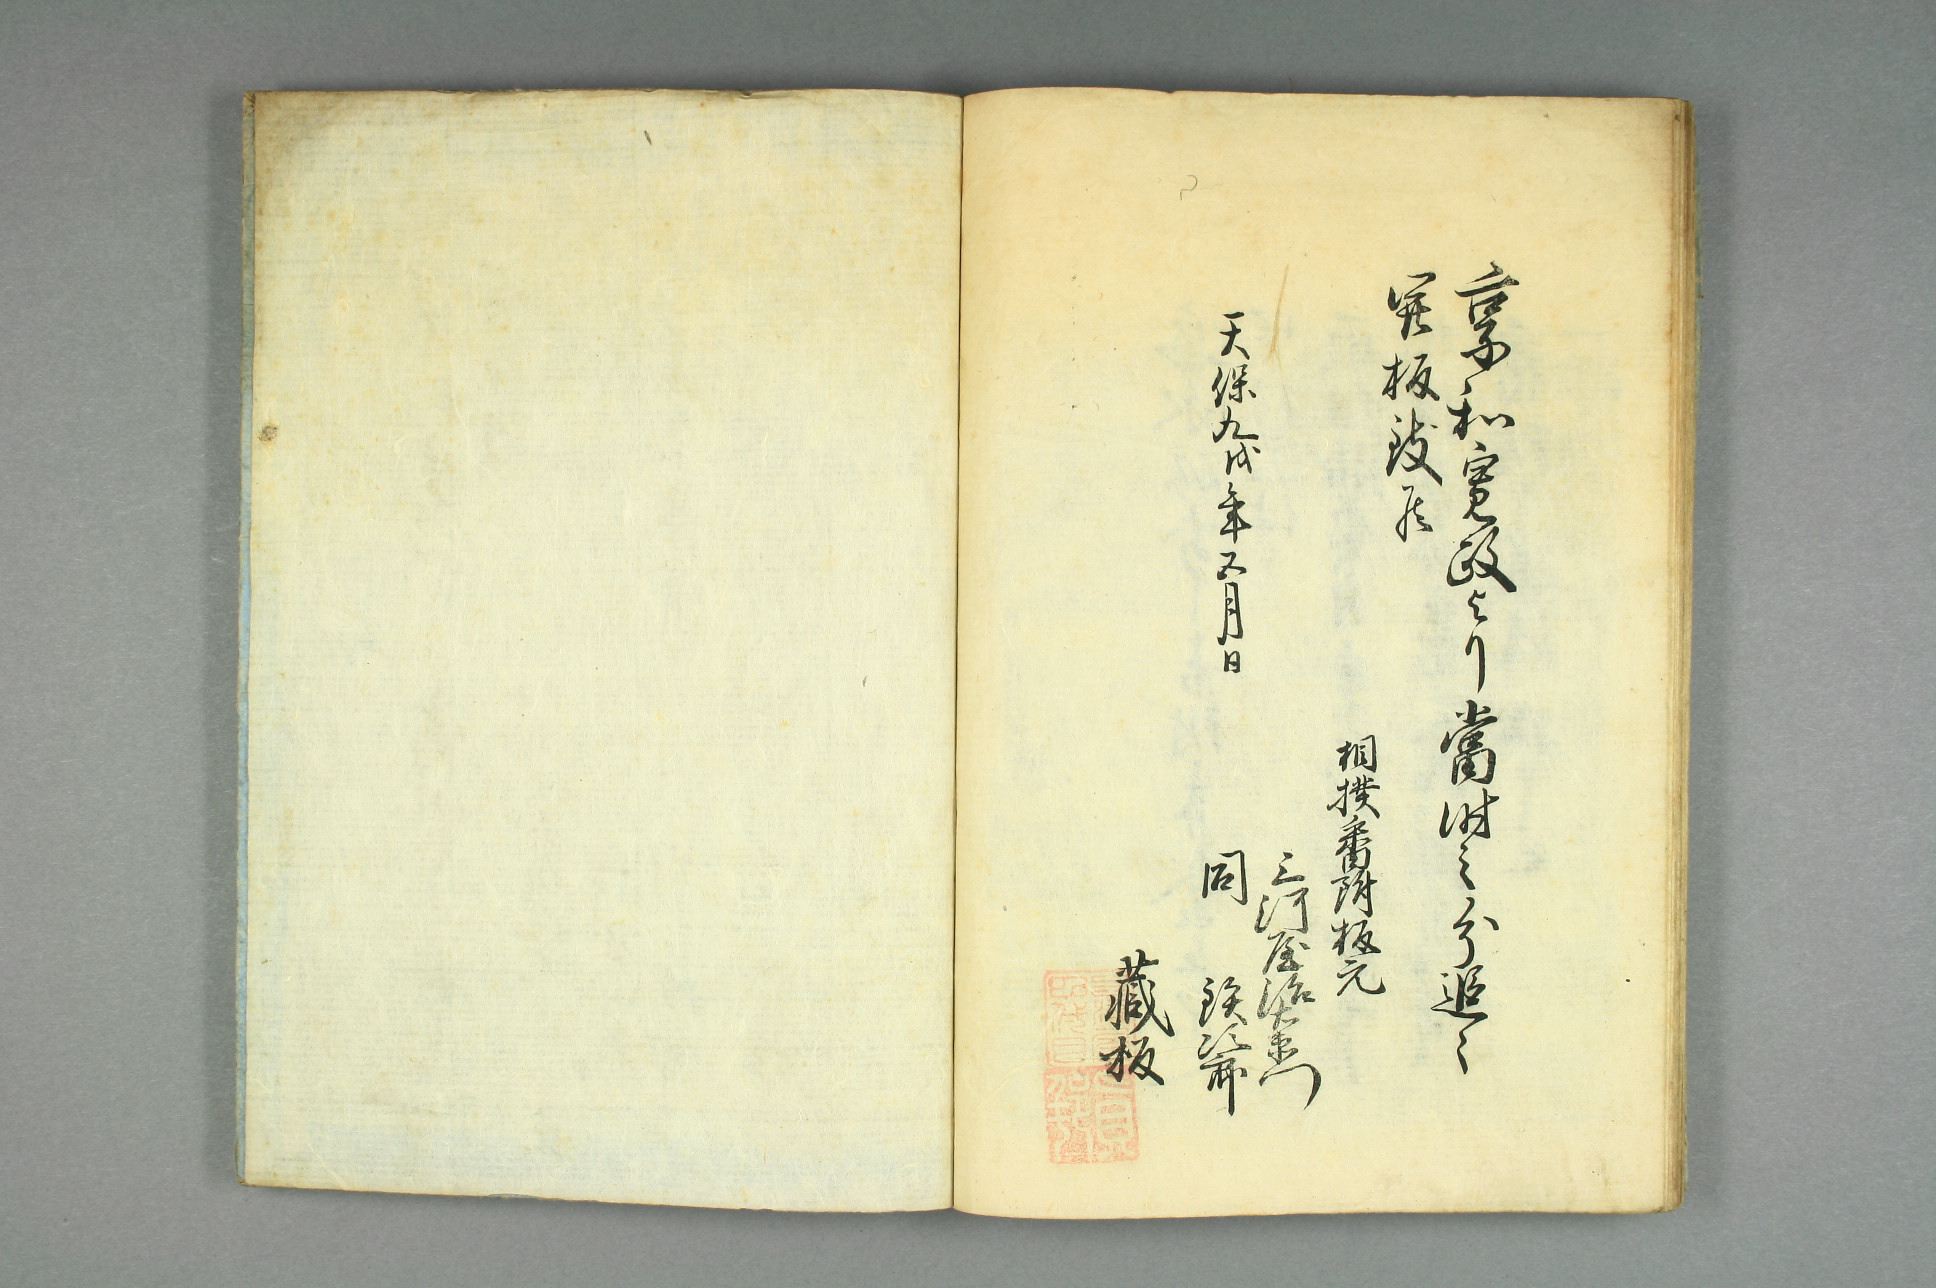 享和寛政より當時之分追々
開板致候
天保九戌年五月日
相撲番附板元
三河屋治右衛門
同 鉄次郎
藏板